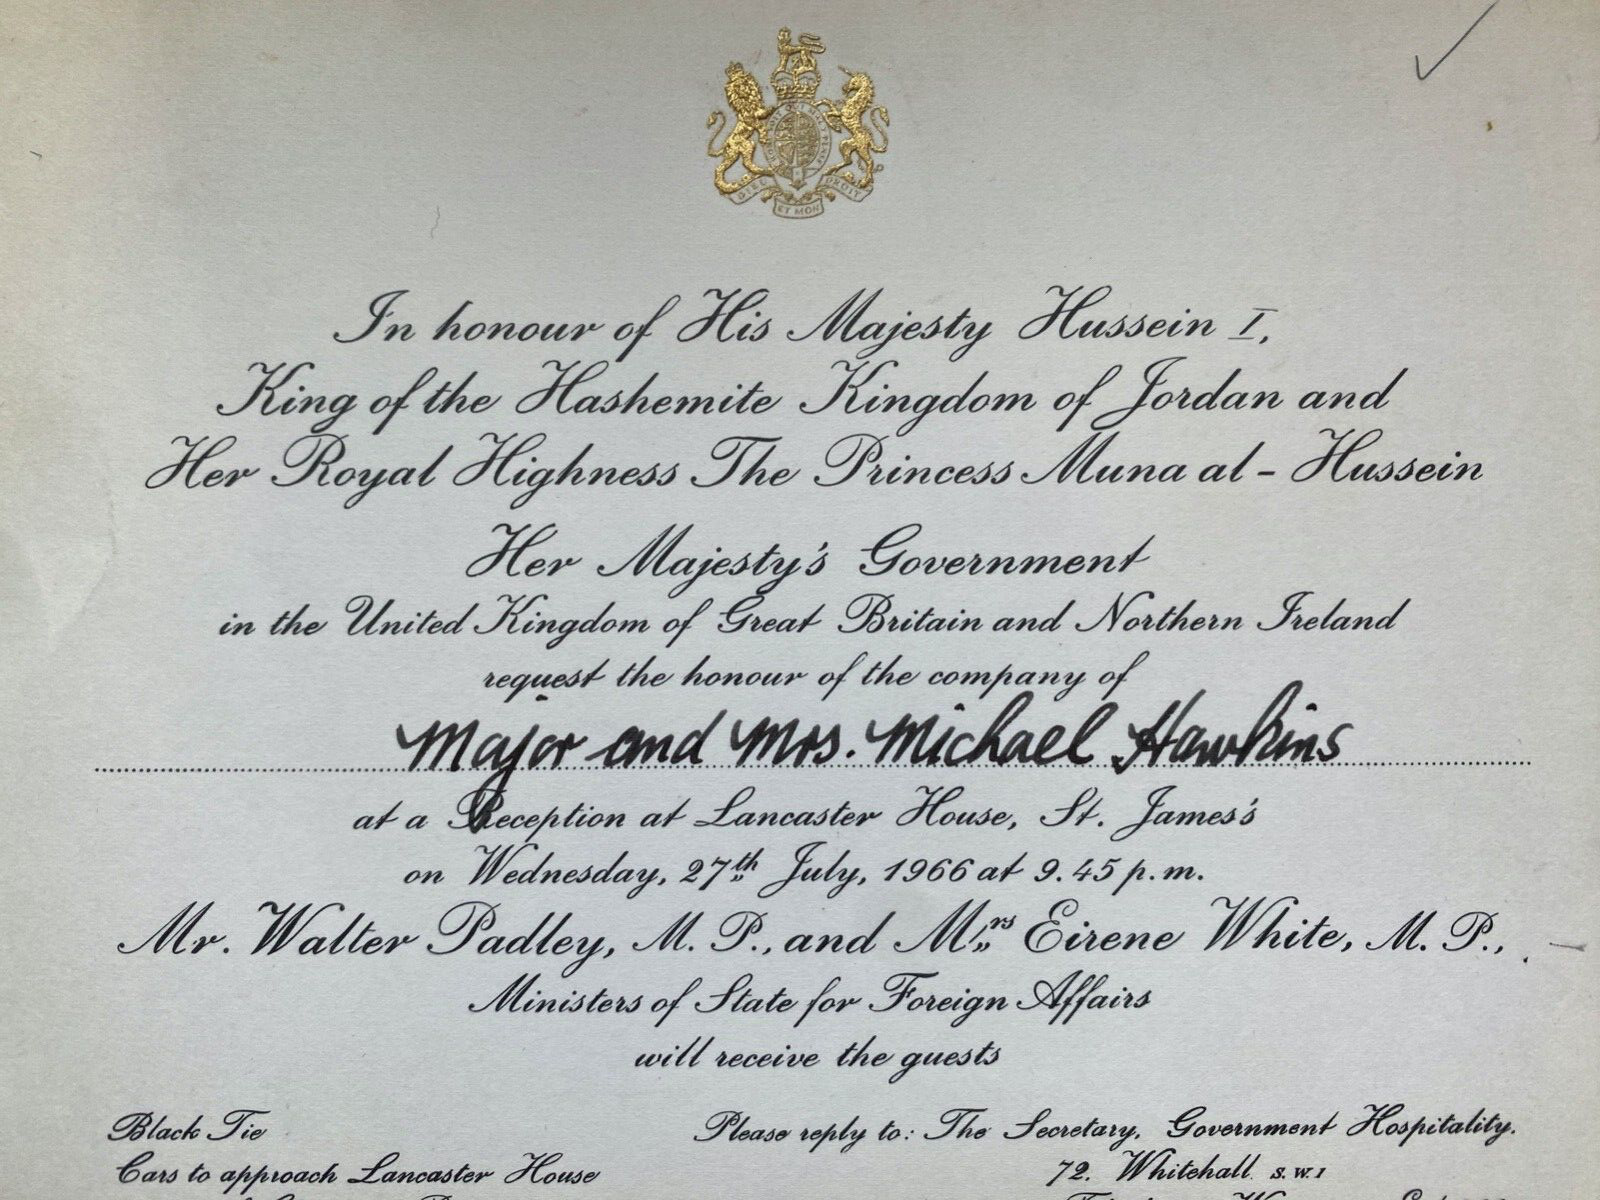 DIEU ET MON DROIT
In honour of His Majesty Hussein I,
King of the Hashemite Kingdom of Jordan and
Her Royal Highness The Princess Muna al - Hussein
Her Majesty's Government
in the United Kingdom of Great Britain and Northern Ireland
request the honour of the company of
Major and Mrs. Michael Hawkins
at a Reception at Lancaster House, St. James's
on Wednesday, 27th July, 1966 at 9.45 p.m.
Mr. Walter Padley, M. P., and Mrs Eirene White, M. P.,
Ministers of State for Foreign Affairs
will receive the guests
Black Tie
Cars to approach Lancaster House
Please reply to: The Secretary, Government Hospitality.
72, Whitehall S.W.1